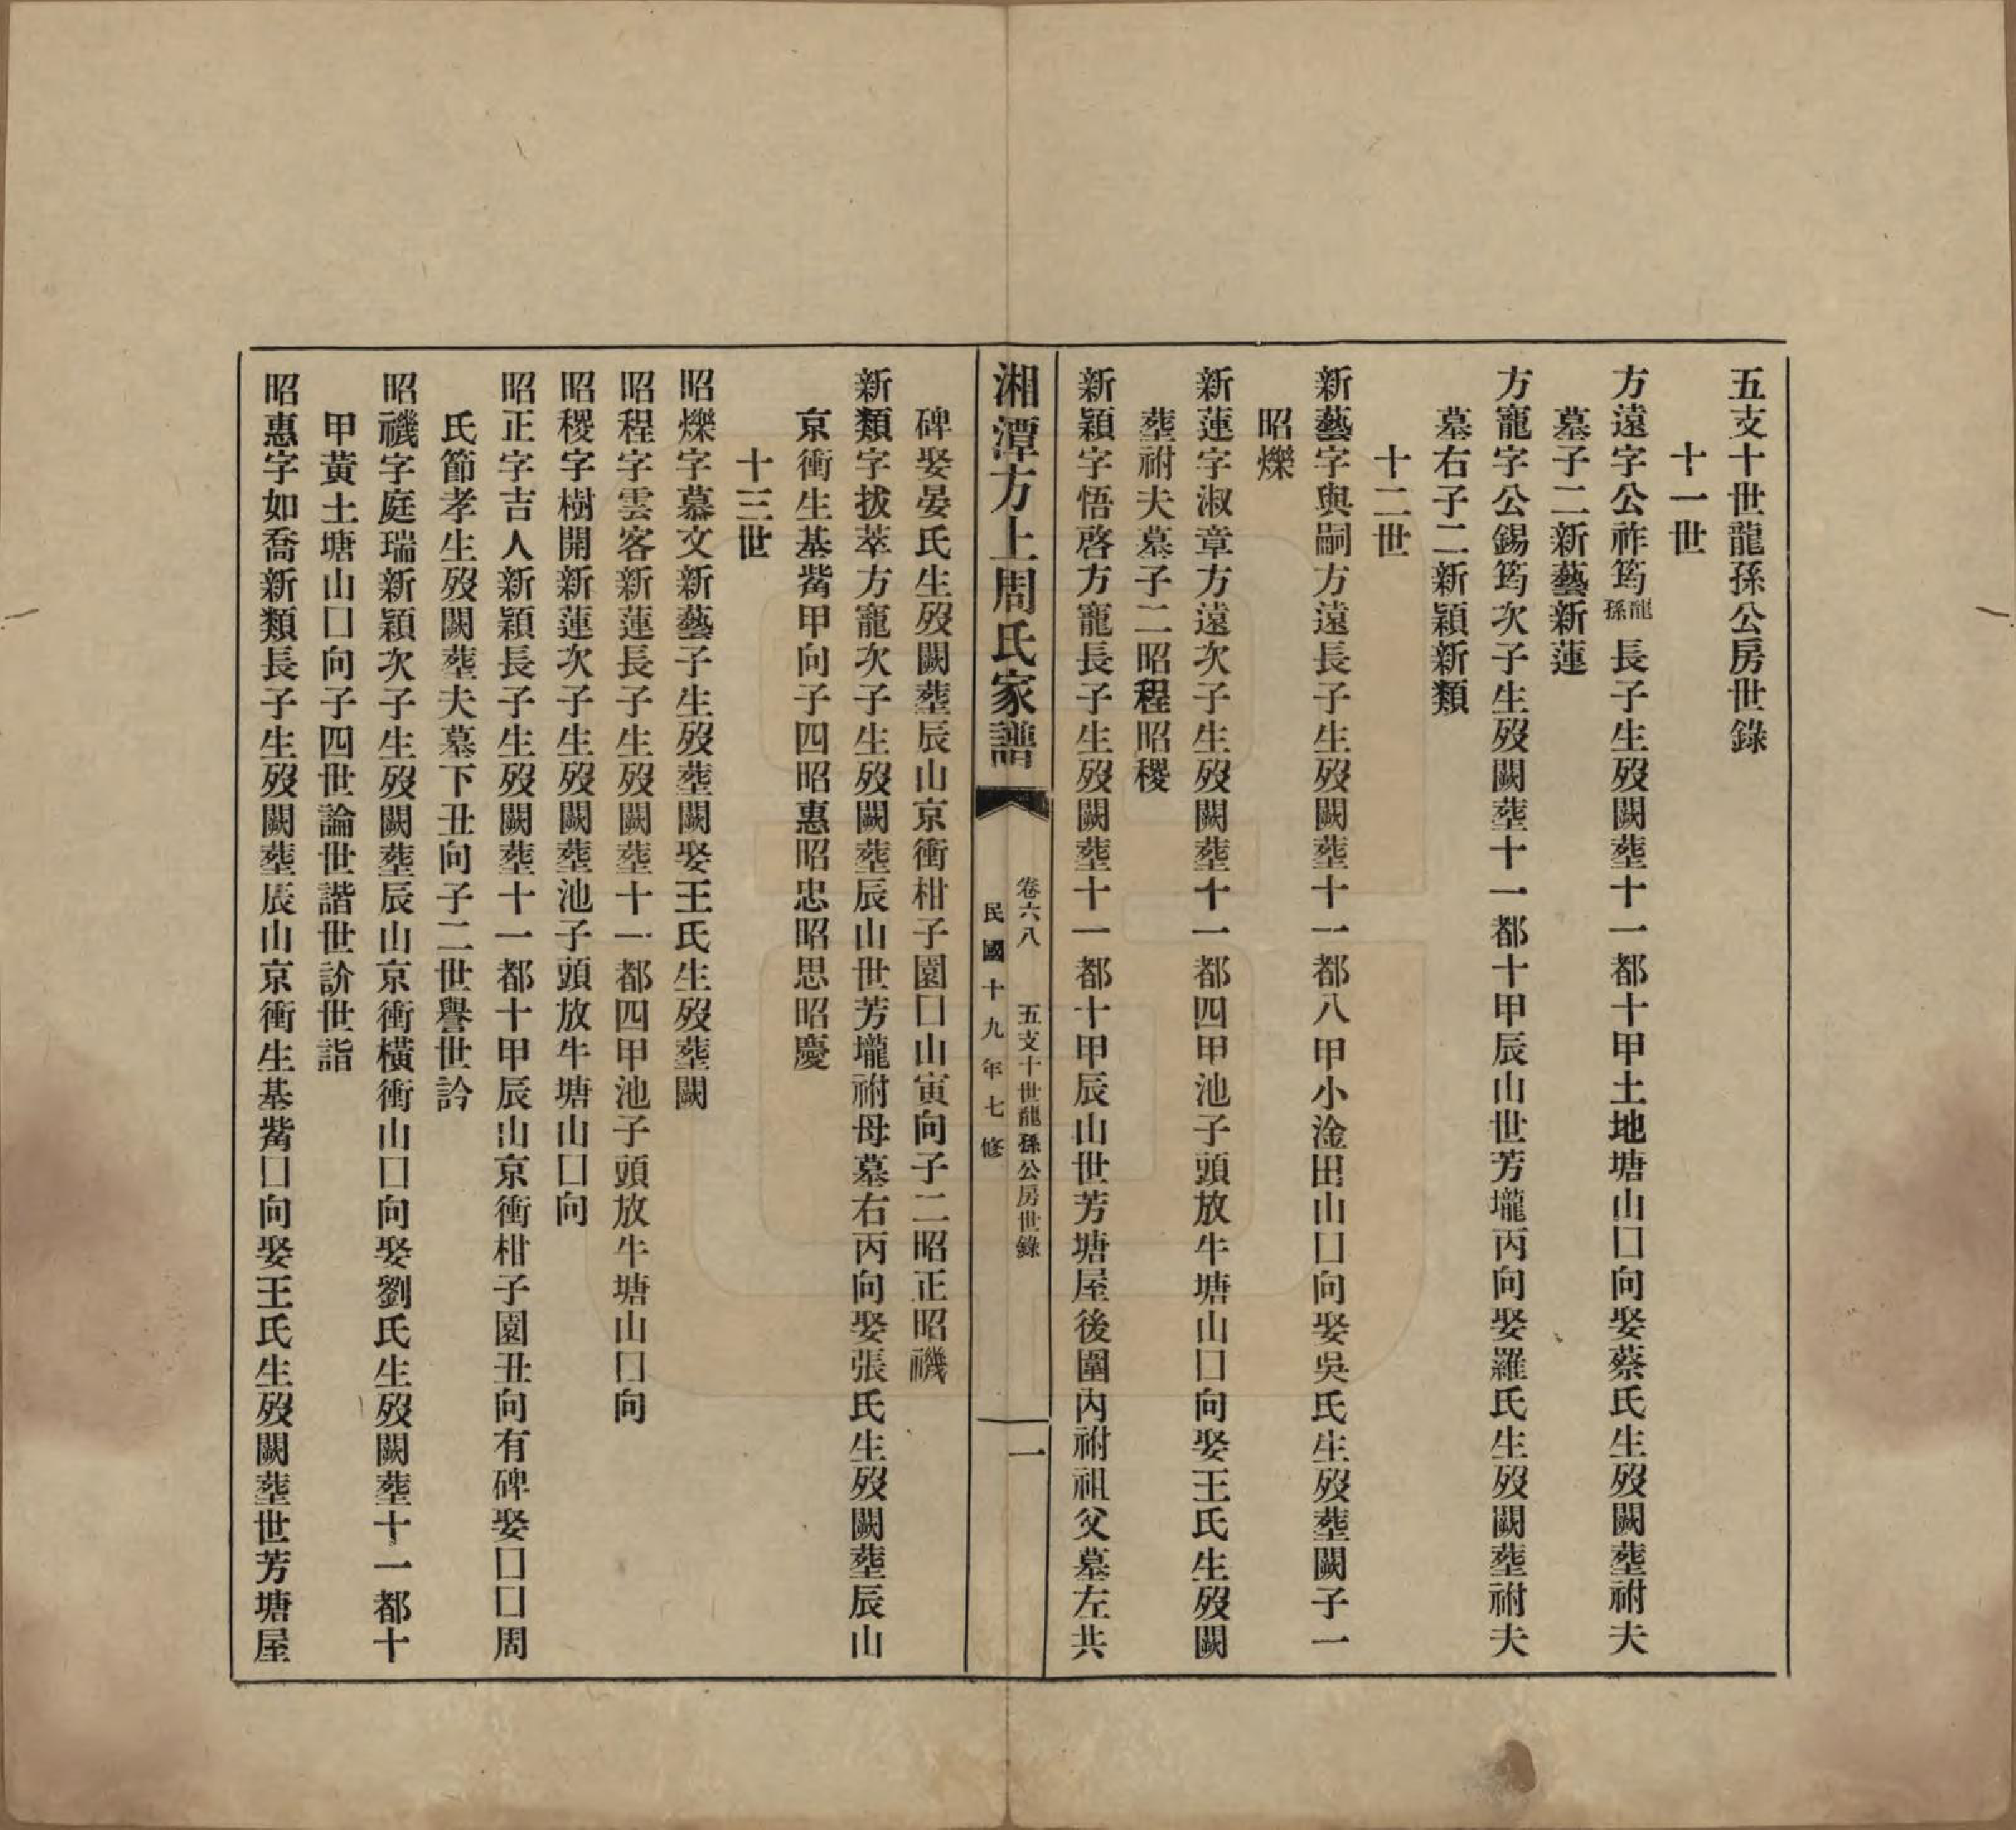 五支十世龍孫公房世錄
十一世
方遠字公祚筠龍孫長子生歿闕塟十一都十甲土地塘山囗向娶蔡氏生歿闕塟祔夫
墓子二新藝新蓮
方寵字公錫筠次子生歿闕塟十一都十甲辰山世芳壠丙向娶羅氏生歿闕塟祔夫
墓右子二新穎新類
十二世
新藝字與嗣方遠長子生歿闕塟十一都八甲小淦田山囗向娶吳氏生歿塟闕子一
昭爍
新蓮字淑章方遠次子生歿闕塟十一都四甲池子頭放牛塘山囗向娶王氏生歿闕
塟祔夫墓子二昭程昭稷
新穎字悟啓方寵長子生歿闕塟十一都十甲辰山世芳塘屋後圍內祔祖父墓左共
湘潭方上周氏家譜
卷六八　五支十世龍孫公房世錄
一
民國十九年七修
碑娶晏氏生歿闕塟辰山京衝柑子園囗山寅向子二昭正昭禨
新類字拔萃方寵次子生歿闕塟辰山世芳壠祔母墓右丙向娶張氏生歿闕塟辰山
京衝生基觜甲向子四昭惠昭忠昭思昭慶
十三世
昭爍字慕文新藝子生歿塟闕娶王氏生歿塟闕
昭程字雲客新蓮長子生歿闕塟十一都四甲池子頭放牛塘山囗向
昭稷字樹開新蓮次子生歿闕塟池子頭放牛塘山囗向
昭正字吉人新穎長子生歿闕塟十一都十甲辰山京衝柑子園丑向有碑娶囗囗周
氏節孝生歿闕塟夫墓下丑向子二世譽世訡
昭禨字庭瑞新穎次子生歿闕塟辰山京衝橫衝山囗向娶劉氏生歿闕塟十一都十
甲黃土塘山囗向子四世論世諧世䚸世詣
昭惠字如喬新類長子生歿闕塟辰山京衝生基觜囗向娶王氏生歿闕塟世芳塘屋